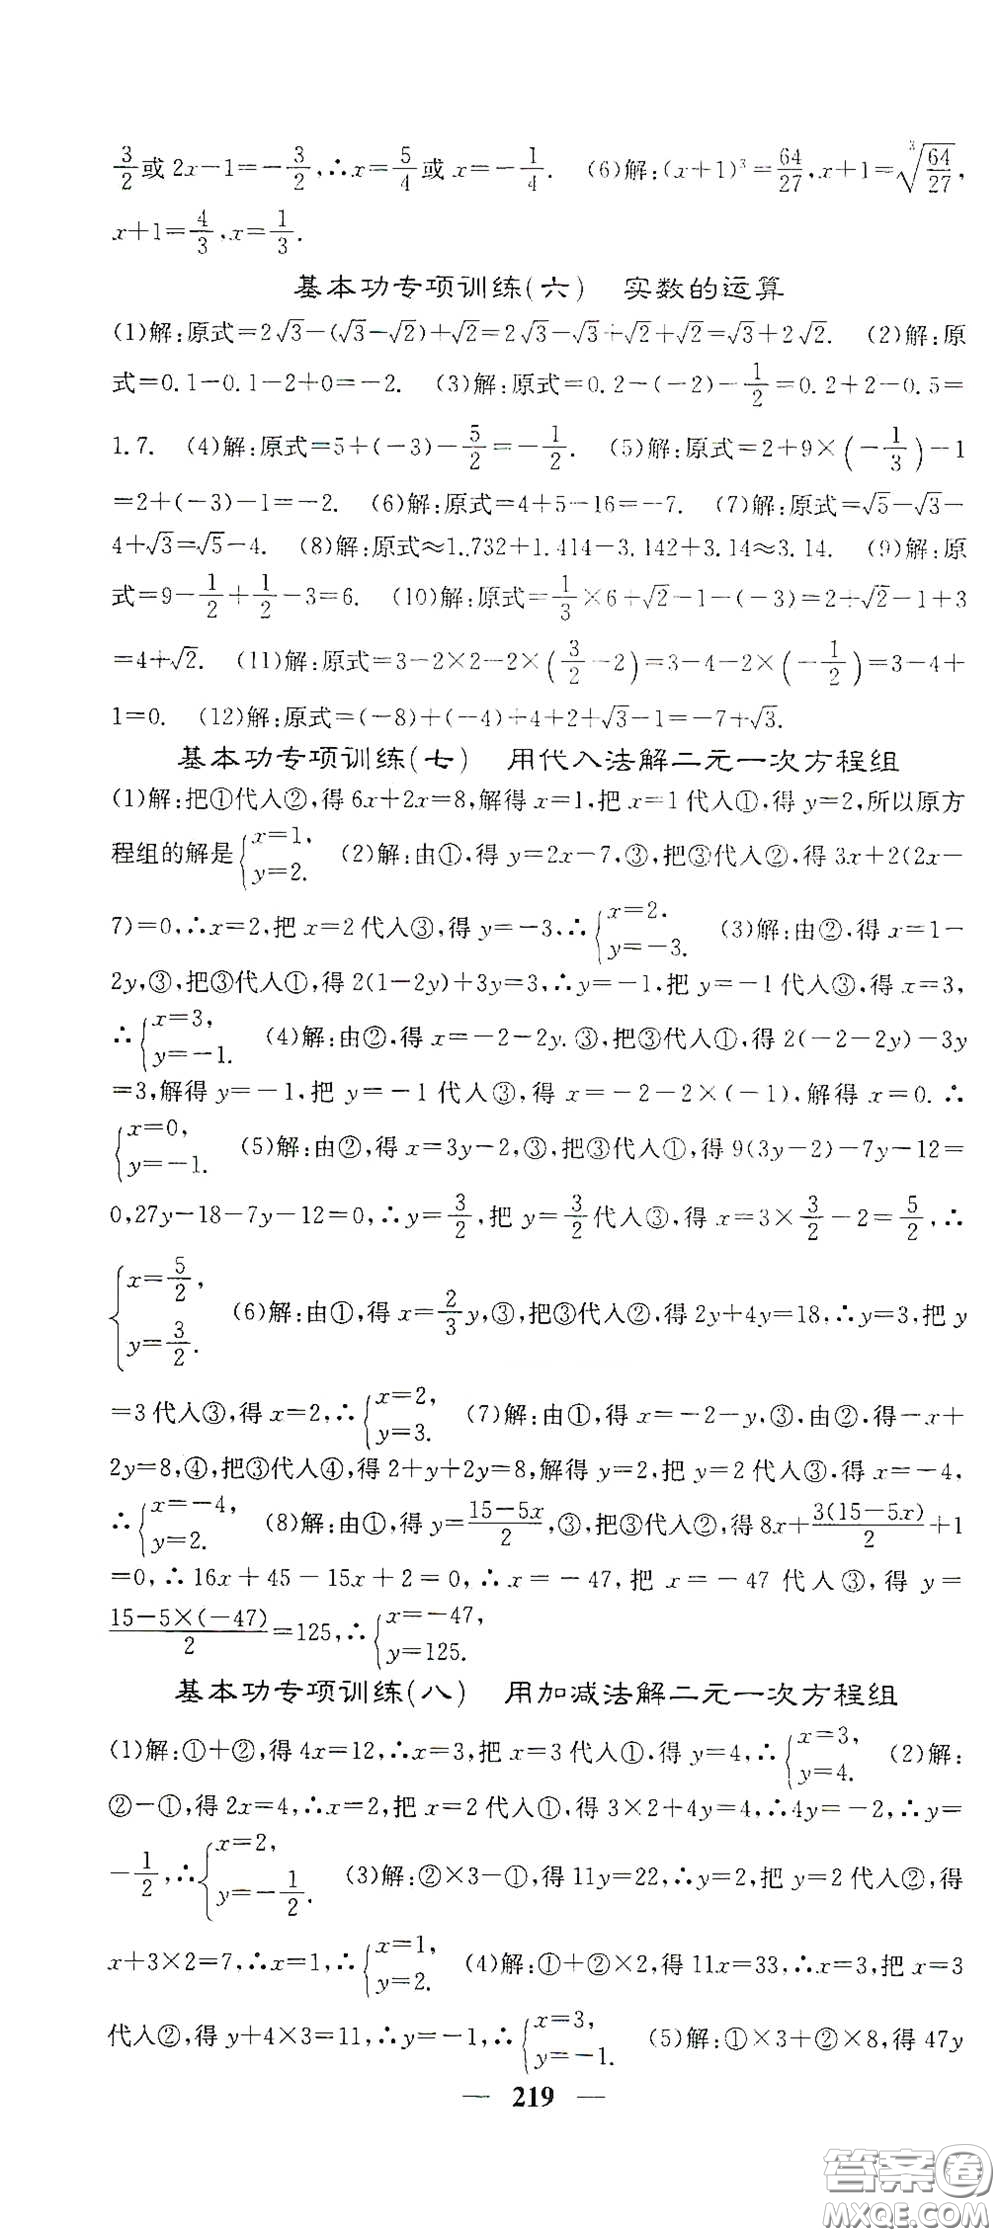 3/2或 2x-1=-3/2,∴x=5/4或 x=-1/4. (6)解:(x+1)³=64/27,x+1=∛(64/27),
x+1=4/3,x=1/3.
基本功专项训练(六) 实数的运算
(1)解:原式=2√3-(√3-√2)+√2=2√3-√3+√2+√2=√3+2√2. (2)解:原
式=0.1-0.1-2+0=-2. (3)解:原式=0.2-(-2)-1/2=0.2+2-0.5=
1.7. (4)解:原式=5+(-3)-5/2=-1/2. (5)解:原式=2+9×(-1/3)-1
=2+(-3)-1=-2. (6)解:原式=4+5-16=-7. (7)解:原式=√5-√3-
4+√3=√5-4. (8)解:原式≈1.732+1.414-3.142+3.14≈3.14. (9)解:原
式=9-1/2+1/2-3=6. (10)解:原式=1/3×6+√2-1-(-3)=2+√2-1+3
=4+√2. (11)解:原式=3-2×2-2×(3/2-2)=3-4-2×(-1/2)=3-4+
1=0. (12)解:原式=(-8)+(-4)÷4+2+√3-1=-7+√3.
基本功专项训练(七) 用代入法解二元一次方程组
(1)解:把①代入②,得 6x+2x=8,解得 x=1,把 x=1 代入①,得 y=2,所以原方
程组的解是{x=1, y=2. (2)解:由①,得 y=2x-7,③,把③代入②,得 3x+2(2x-
7)=0,∴x=2,把 x=2 代入③,得 y=-3,∴{x=2. y=-3. (3)解:由②,得 x=1-
2y,③,把③代入①,得 2(1-2y)+3y=3,∴y=-1,把 y=-1 代入③,得 x=3,
∴{x=3, y=-1. (4)解:由②,得 x=-2-2y.③,把③代入①,得 2(-2-2y)-3y
=3,解得 y=-1,把 y=-1 代入③,得 x=-2-2×(-1),解得 x=0. ∴
{x=0, y=-1. (5)解:由②,得 x=3y-2,③,把③代入①,得 9(3y-2)-7y-12=
0,27y-18-7y-12=0,∴y=3/2,把 y=3/2代入③,得 x=3×3/2-2=5/2,∴
{x=5/2, y=3/2. (6)解:由①,得 x=2/3y,③,把③代入②,得 2y+4y=18,∴y=3,把 y
=3 代入③,得 x=2,∴{x=2, y=3. (7)解:由①,得 x=-2-y,③,由②,得-x+
2y=8,④,把③代入④,得 2+y+2y=8,解得 y=2,把 y=2 代入③,得 x=-4,
∴{x=-4, y=2. (8)解:由①,得 y=(15-5x)/2,③,把③代入②,得 8x+3(15-5x)/2+1
=0,∴16x+45-15x+2=0,∴x=-47,把 x=-47 代入③,得 y=
(15-5×(-47))/2=125,∴{x=-47, y=125.
基本功专项训练(八) 用加减法解二元一次方程组
(1)解:①+②,得 4x=12,∴x=3,把 x=3 代入①,得 y=4,∴{x=3, y=4. (2)解:
②-①,得 2x=4,∴x=2,把 x=2 代入①,得 3×2+4y=4,∴4y=-2,∴y=
-1/2,∴{x=2, y=-1/2. (3)解:②×3-①,得 11y=22,∴y=2,把 y=2 代入②,得
x+3×2=7,∴x=1,∴{x=1, y=2. (4)解:①+②×2,得 11x=33,∴x=3,把 x=3
代入②,得 y+4×3=11,∴y=-1,∴{x=3, y=-1. (5)解:①×3+②×8,得 47y
— 219 —
答案卷
MXQE.COM